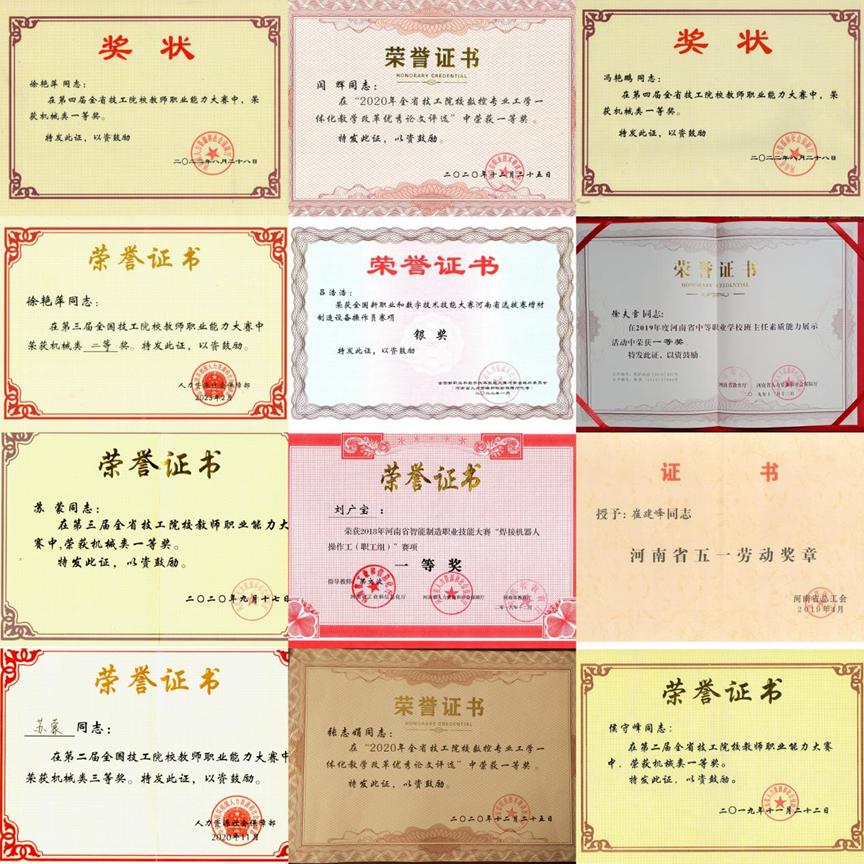 奖 状
徐艳萍 同志：
在第四届全省技工院校教师职业能力大赛中，荣
获机械类一等奖。
特发此证，以资鼓励
二〇二二年八月二十八日
荣誉证书
HONORARY CREDENTIAL
闫 辉同志：
在“2020年全省技工院校数控专业工学一
体化教学改革优秀论文评选”中荣获一等奖。
特发此证，以资鼓励。
二〇二〇年十二月二十五日
奖 状
冯艳鹏 同志：
在第四届全省技工院校教师职业能力大赛中，荣
获机械类一等奖。
特发此证，以资鼓励
二〇二二年八月二十八日
荣誉证书
徐艳萍同志：
在第三届全国技工院校教师职业能力大赛中
荣获机械类 二等 奖。特发此证，以资鼓励。
人力资源社会保障部
2023年2月
荣誉证书
吕浩浩：
荣获全国新职业和数字技术技能大赛河南省选拔赛增材
制造设备操作员赛项
银 奖
特发此证，以资鼓励
荣誉证书
HONORARY CREDENTIAL
徐夫雷同志：
在2019年度河南省中等职业学校班主任素质能力展示
活动中荣获一等奖。
特发此证，以资鼓励。
河南省教育厅 河南省人力资源和社会保障厅
荣誉证书
苏 蒙同志：
在第三届全省技工院校教师职业能力大
赛中，荣获机械类一等奖。
特发此证，以资鼓励。
二〇二〇年九月十七日
荣誉证书
刘广宝 ：
荣获2018年河南省智能制造职业技能大赛“焊接机器人
操作工（职工组）”赛项
一等奖
指导教师：
河南省工业和信息化厅 河南省人力资源和社会保障厅 河南省教育厅
证 书
授予：崔建峰同志
河南省五一劳动奖章
河南省总工会
2019年4月
荣誉证书
苏蒙 同志：
在第二届全国技工院校教师职业能力大赛中
荣获机械类三等奖。特发此证，以资鼓励。
人力资源社会保障部
2020年11月
荣誉证书
HONORARY CREDENTIAL
张志娟同志：
在“2020年全省技工院校数控专业工学一
体化教学改革优秀论文评选”中荣获一等奖。
特发此证，以资鼓励。
二〇二〇年十二月二十五日
荣誉证书
侯守峰同志：
在第二届全省技工院校教师职业能力大赛
中，荣获机械类一等奖。
特发此证，以资鼓励。
二〇一九年十一月二十二日